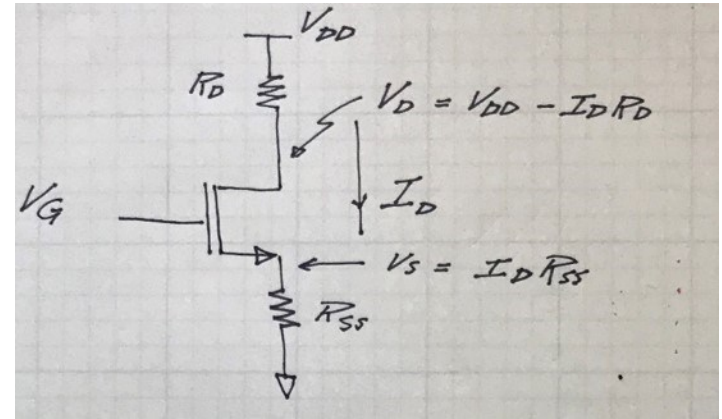 V_DD
R_D
V_D = V_DD - I_D R_D
V_G
I_D
V_S = I_D R_SS
R_SS